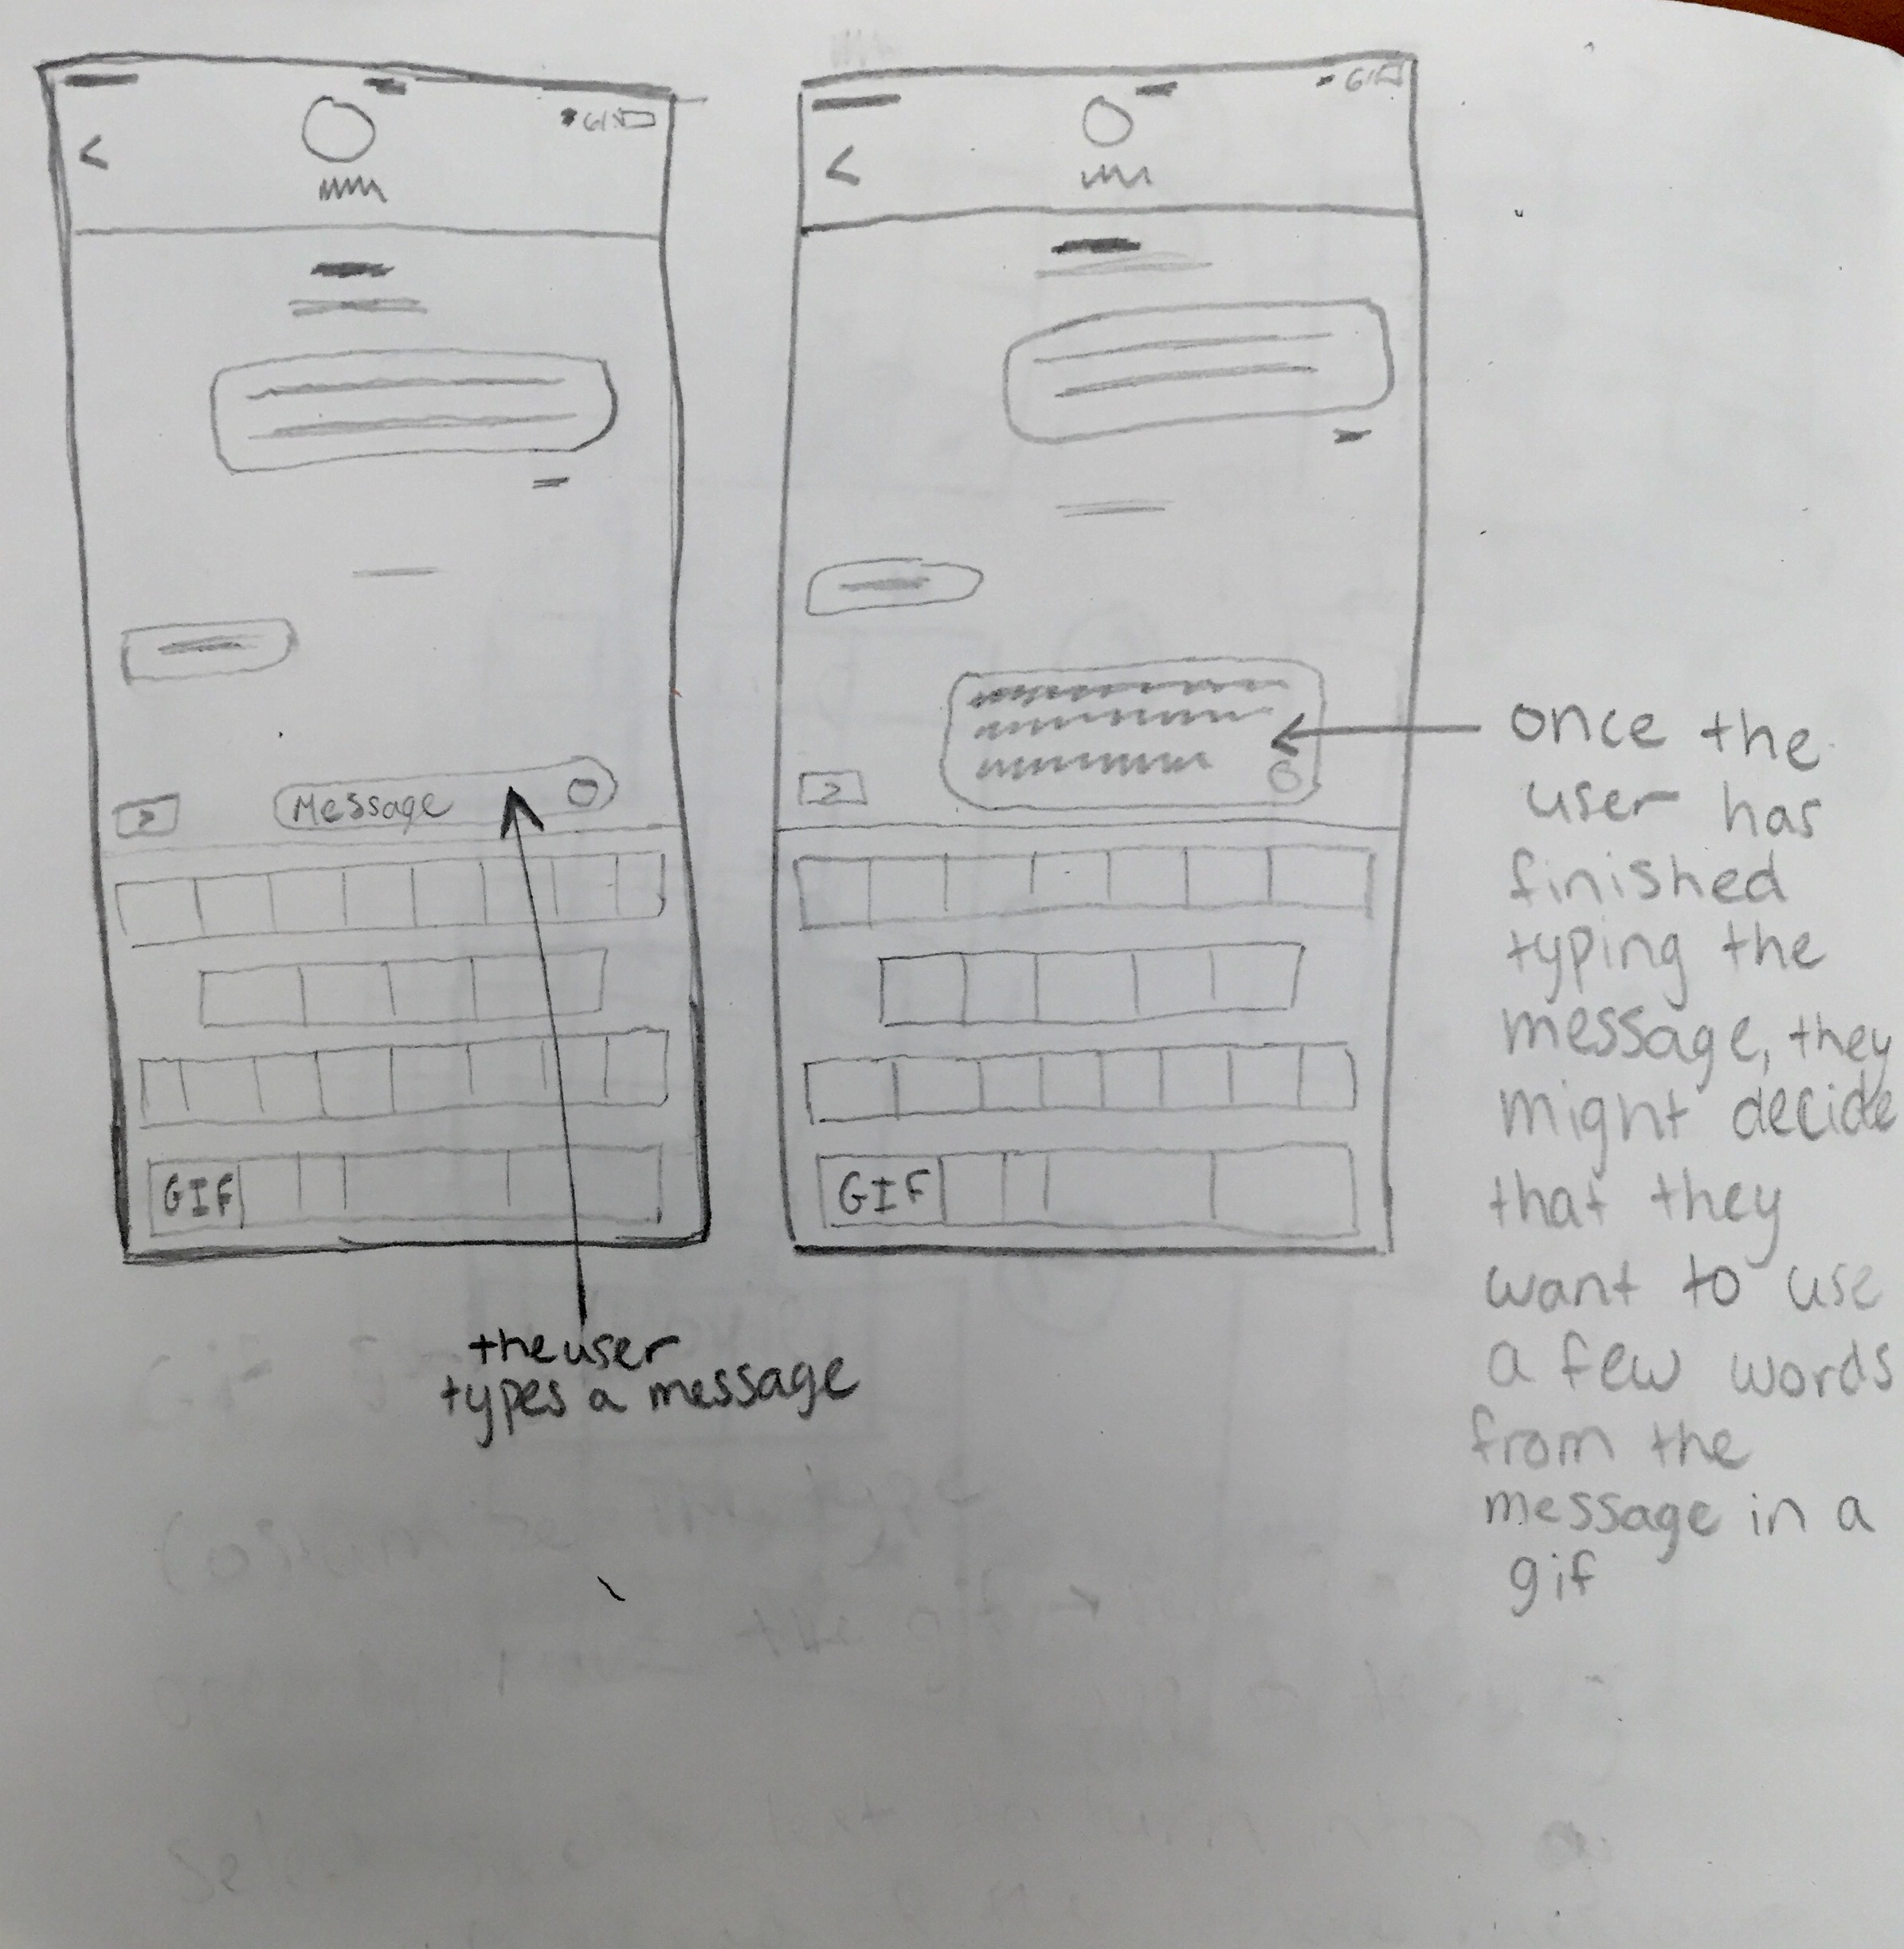 Message
GIF
the user
types a message
GIF
once the
user has
finished
typing the
message, they
might decide
that they
want to use
a few words
from the
message in a
gif